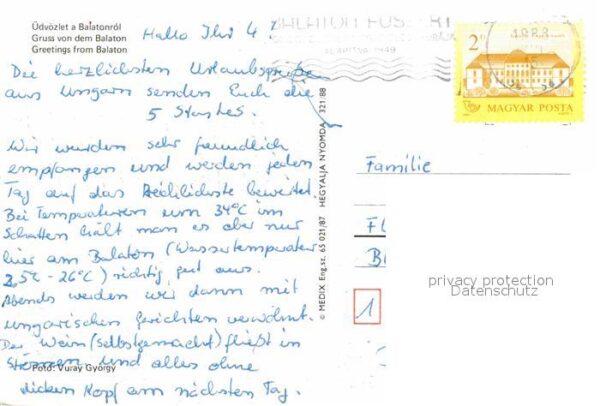 Üdvözlet a Balatonról
Gruss von dem Balaton
Greetings from Balaton
Hallo Ihr 4
Die herzlichsten Urlaubsgrüße
aus Ungarn senden Euch die
5 Stastes.
Wir wurden sehr freundlich
empfangen und werden jeden
Tag auf das Reichlichste bewirtet.
Bei Temperaturen um 34°C im
Schatten hält man es aber nur
hier am Balaton (Wassertemperatur
25°C - 26°C) richtig gut aus.
Abends werden wir dann mit
ungarischen Gerichten verwöhnt.
Der Wein (selbstgemacht) fließt in
Strömen und alles ohne
dicken Kopf am nächsten Tag.
Foto: Vuray György
© MEDIX Eng.sz. 65 021/87 HEGYALJA NYOMDA 321.88
BALATON
1949
2 Ft
1988
MAGYAR POSTA
Familie
privacy protection
Datenschutz
1